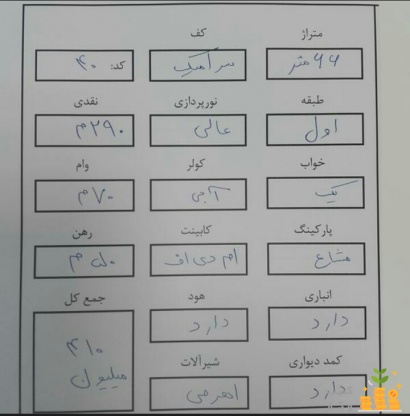 متراژ کف
۶۶ متر سرامیک کد: ۴۰
طبقه نورپردازی نقدی
اول عالی ۲۹۰م
خواب کولر وام
یک آبی ۷۰م
پارکینگ کابینت رهن
مشاع ام دی اف ۵۰م
انباری هود جمع کل
دارد دارد ۴۱۰
میلیون
کمد دیواری شیرآلات
ندارد اهرمی